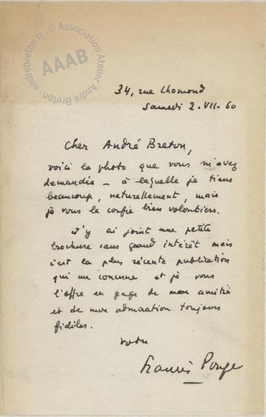 © Association Atelier André Breton
andrebreton.fr
AAAB
34, rue Lhomond
Samedi 2.VII.60
Cher André Breton,
voici la photo que vous m'avez
demandée – à laquelle je tiens
beaucoup, naturellement, mais
je vous la confie bien volontiers.
J'y ai joint une petite
brochure sans grand intérêt mais
c'est la plus récente publication
qui me concerne et je vous
l'offre en gage de mon amitié
et de mon admiration toujours
fidèles.
votre
Francis Ponge